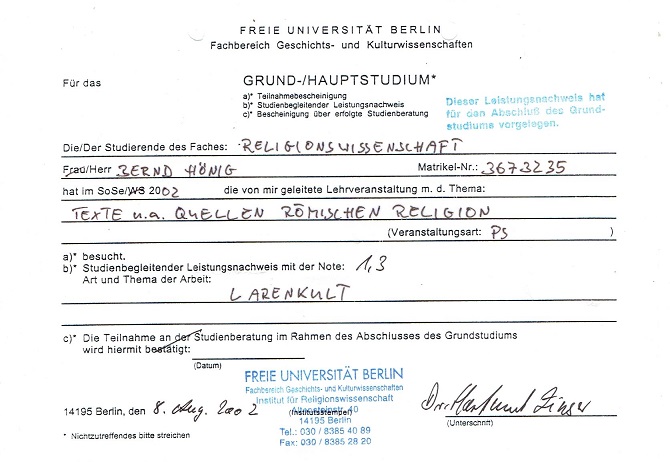 FREIE UNIVERSITÄT BERLIN
Fachbereich Geschichts- und Kulturwissenschaften
Für das GRUND-/HAUPTSTUDIUM*
a)* Teilnahmebescheinigung
b)* Studienbegleitender Leistungsnachweis
c)* Bescheinigung über erfolgte Studienberatung
Dieser Leistungsnachweis hat
für den Abschluß des Grund-
studiums vorgelegen.
Die/Der Studierende des Faches: RELIGIONSWISSENSCHAFT
Frau/Herr BERND HÖNIG Matrikel-Nr.: 3673235
hat im SoSe/WS 2002 die von mir geleitete Lehrveranstaltung m. d. Thema:
TEXTE u.a. QUELLEN RÖMISCHEN RELIGION
(Veranstaltungsart: PS )
a)* besucht.
b)* Studienbegleitender Leistungsnachweis mit der Note: 1,3
Art und Thema der Arbeit:
LARENKULT
c)* Die Teilnahme an der Studienberatung im Rahmen des Abschlusses des Grundstudiums
wird hiermit bestätigt:
(Datum)
FREIE UNIVERSITÄT BERLIN
Fachbereich Geschichts- und Kulturwissenschaften
Institut für Religionswissenschaft
Altensteinstr. 40
14195 Berlin
Tel.: 030 / 8385 40 89
Fax: 030 / 8385 28 20
14195 Berlin, den 8. Aug. 2002 (Institutsstempel) Dr. Hartmut Zinser
(Unterschrift)
* Nichtzutreffendes bitte streichen